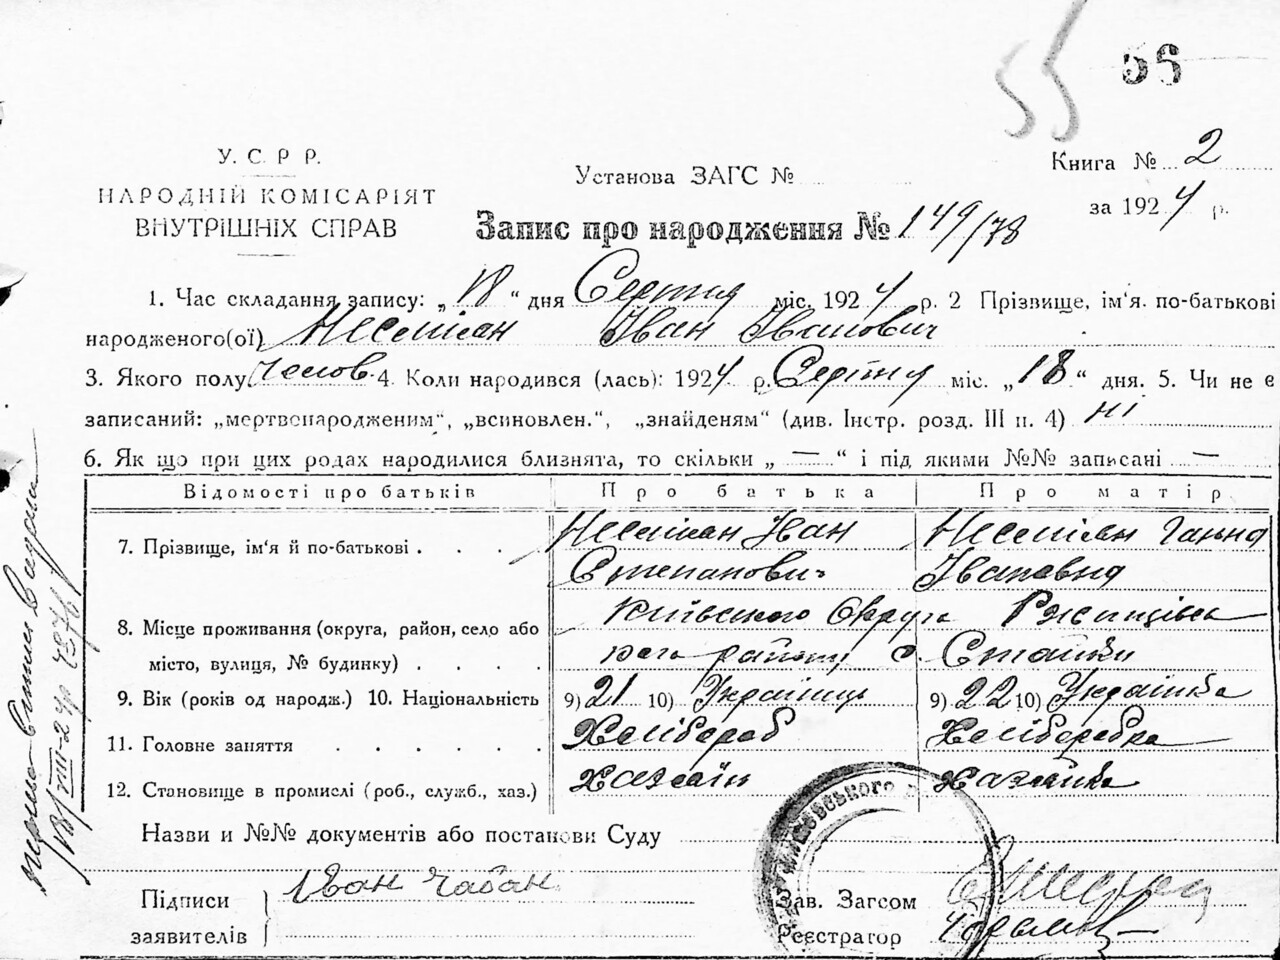 55
56
У. С. Р Р.
НАРОДНІЙ КОМІСАРІЯТ
ВНУТРІШНІХ СПРАВ
Установа ЗАГС №
Книга № 2
за 1924 р.
Запис про народження № 149/78
1. Час складання запису: „18“ дня Серпня міс. 1924 р. 2 Прізвище, ім'я. по-батькові
народженого(ої) Іван Іванович
3. Якого полу Челов. 4. Коли народився (лась): 1924 р. Серпня міс. „18“ дня. 5. Чи не є
записаний: „мертвонародженим“, „всиновлен.“, „знайденям“ (див. Інстр. розд. III п. 4) ні
6. Як що при цих родах народилися близнята, то скільки „ — “ і під якими №№ записані —
Відомості про батьків Про батька Про матір
7. Прізвище, ім'я й по-батькові . . . . Іван Ганна
Степанович Івановна
8. Місце проживання (округа, район, село або Київського Округа Ржищівсь
місто, вулиця, № будинку) . . . . кого району с. Стайки
9. Вік (років од народж.) 10. Національність 9) 21 10) Українець 9) 22 10) Українка
11. Головне заняття . . . . . . Хлібороб Хлiборобка
12. Становище в промислі (роб., служб., хаз.) Хазяїн Хазяйка
Назви и №№ документів або постанови Суду
Підписи
заявителів
Іван Чабан
Зав. Загсом
Реєстратор